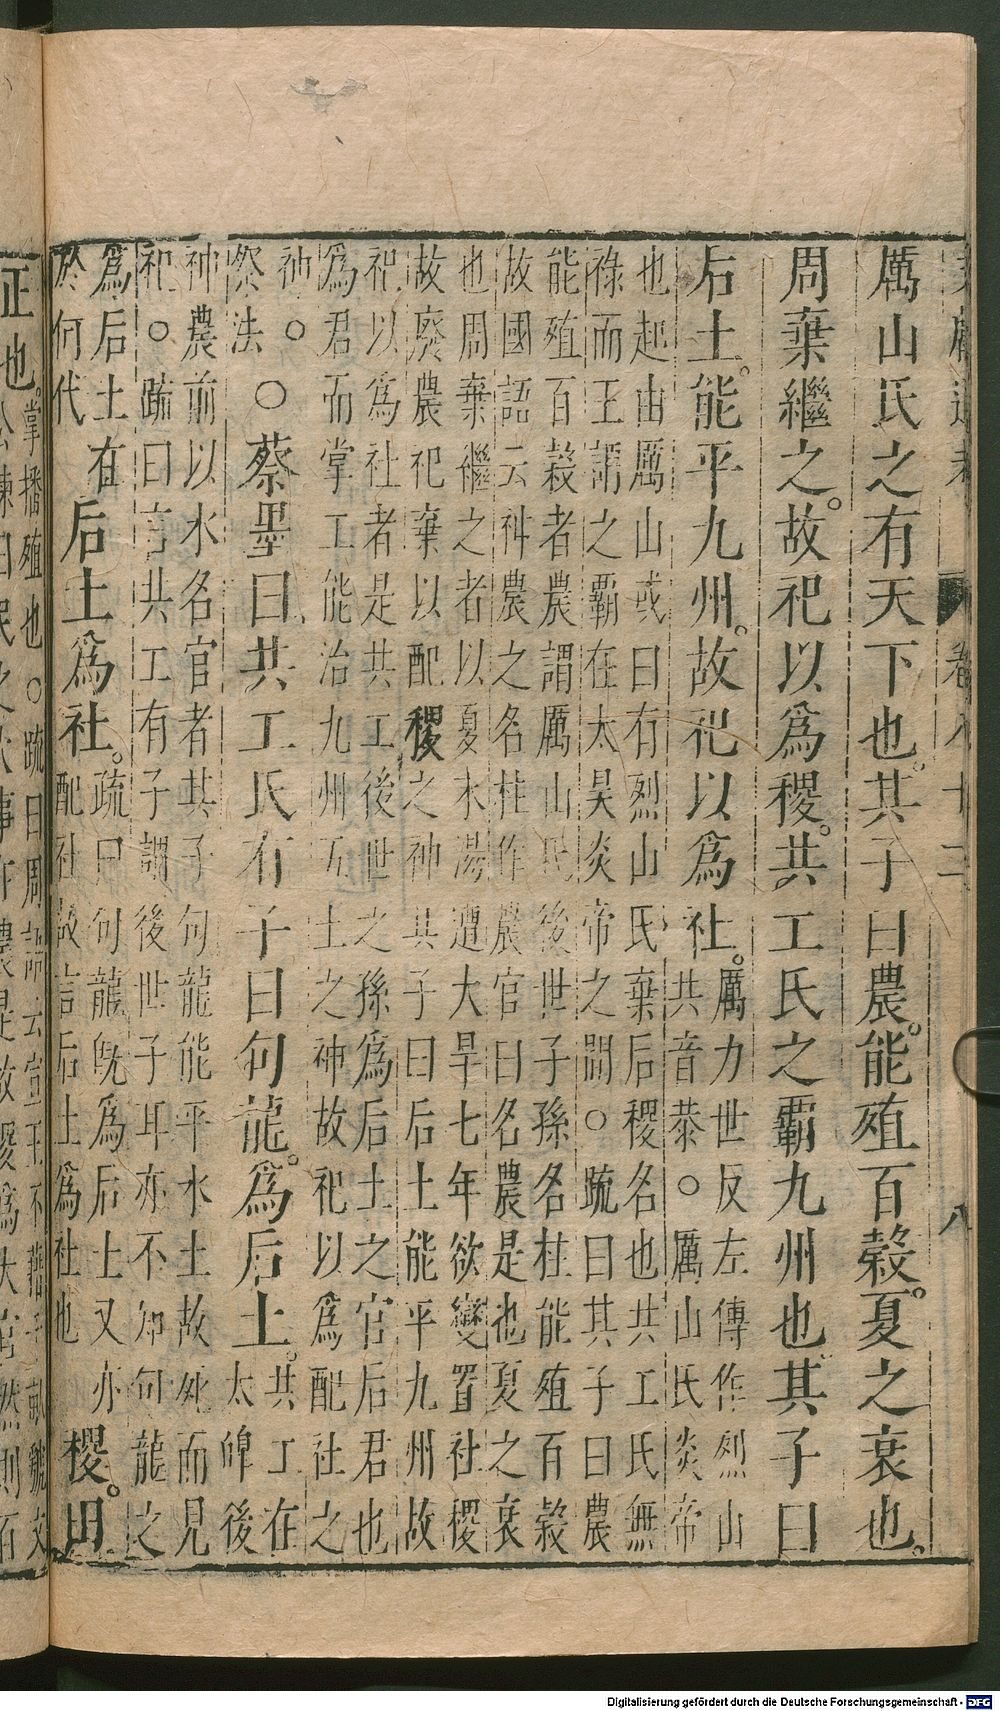 文獻通考 卷八十二 八
厲山氏之有天下也。其子曰農。能殖百穀。夏之衰也。
周棄繼之。故祀以爲稷。共工氏之霸九州也。其子曰
后土。能平九州。故祀以爲社。厲力世反左傳作烈山
共音恭○厲山氏炎帝
也起由厲山或曰有烈山氏棄后稷名也共工氏無
祿而王謂之霸在太昊炎帝之間○疏曰其子曰農
能殖百穀者農謂厲山氏後世子孫名柱能殖百穀
故國語云神農之名柱作農官曰名農是也夏之衰
也周棄繼之者以夏末湯遭大旱七年欲變置社稷
故廢農祀棄以配稷之神共子曰后土能平九州故
祀以爲社者是共工後世之孫爲后土之官后君也
爲君而掌工能治九州五土之神故祀以爲配社之
神。
祭法
○蔡墨曰共工氏有子曰句龍。爲后土。共工在
太皞後
神農前以水名官者其子句龍能平水土故死而見
祀○疏曰言共工有子謂後世子耳亦不知句龍之
爲后土在
於何代
后土爲社。疏曰句龍既爲后土又亦
配社故言后土爲社也
稷。田
正也。掌播殖也○疏曰周語云宣王不藉千畝虢文
公諫曰民之大事在農是故稷爲大官然則百
Digitalisierung gefördert durch die Deutsche Forschungsgemeinschaft - DFG